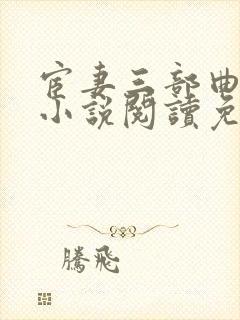 宦妻三部曲
小說閱讀免
騰飛